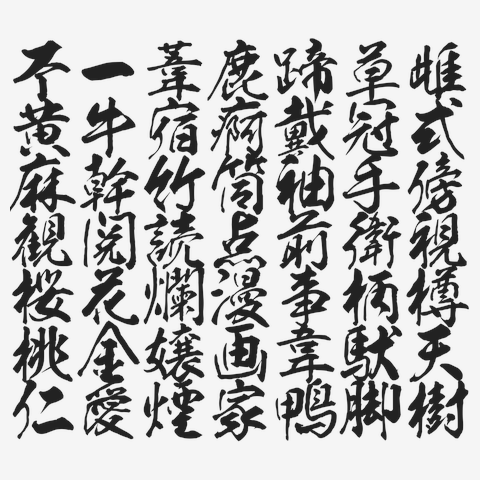 雌式傍視樽天樹
草冠手衛柄駄脚
蹄戴袖前事韋鴨
鹿痾筒点漫画家
葦宿竹読爛嬢煙
一牛幹閲花金愛
不黄麻観桜桃仁